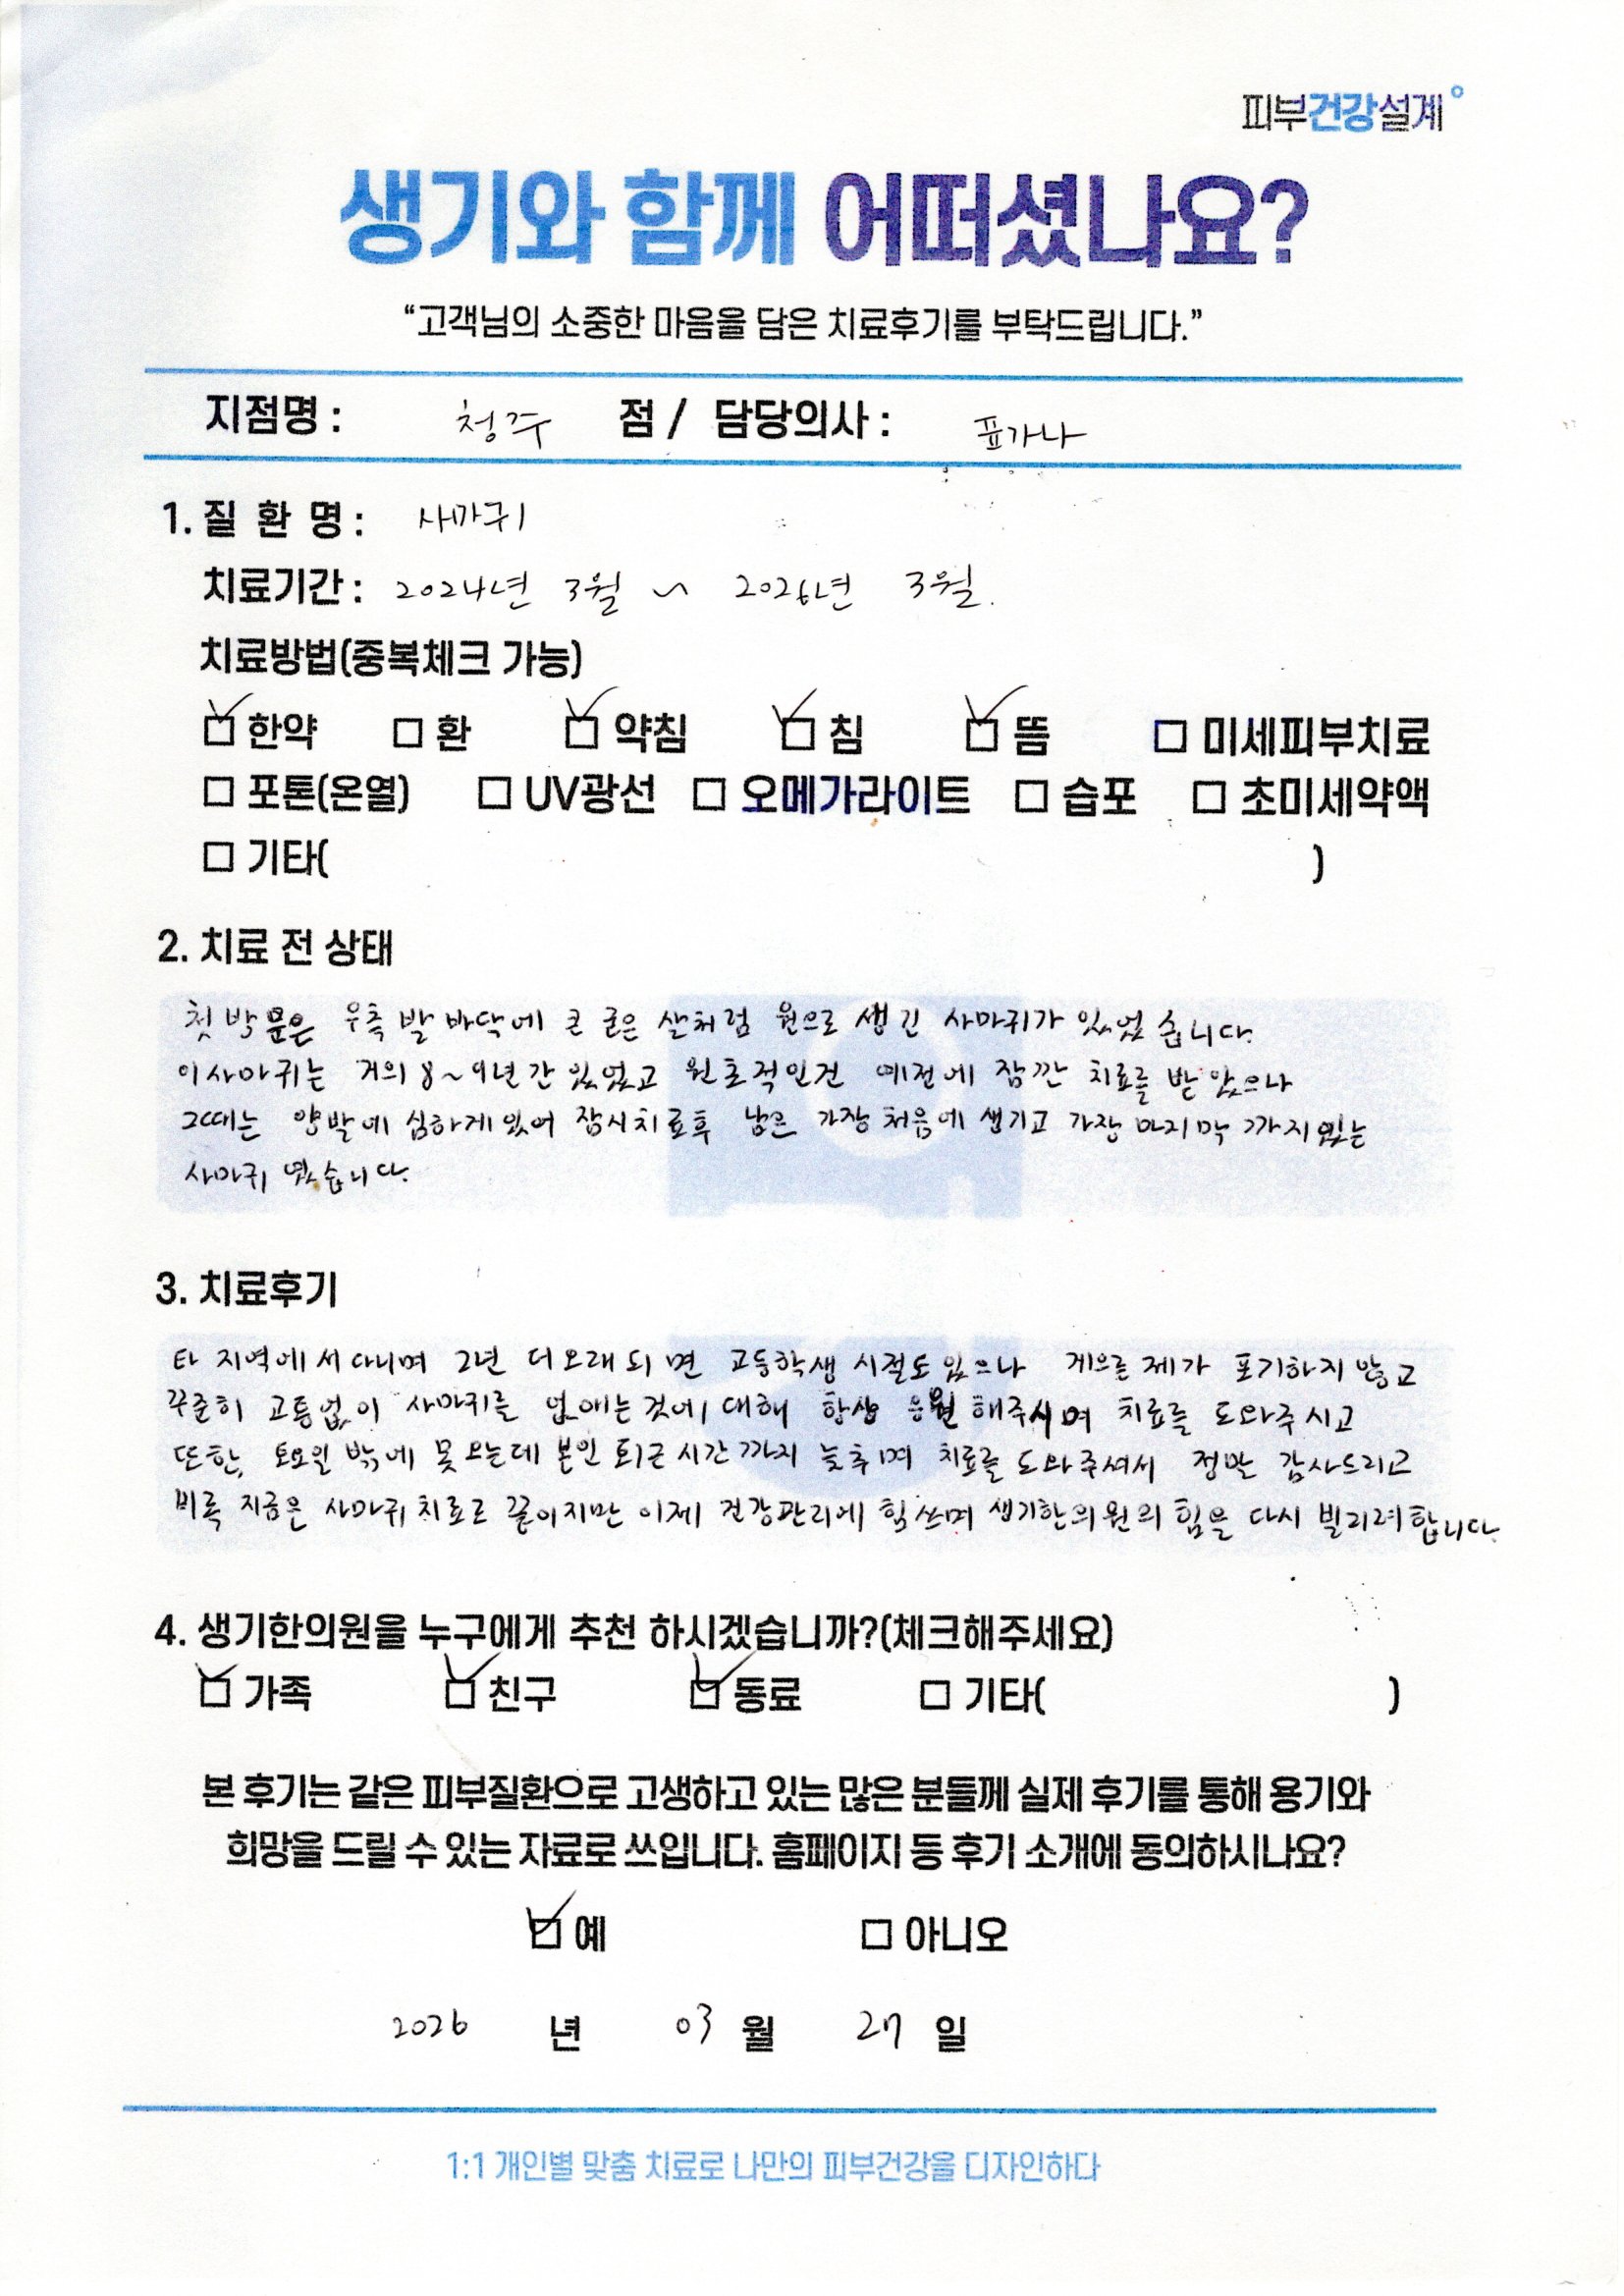 피부건강설계
생기와 함께 어떠셨나요?
“고객님의 소중한 마음을 담은 치료후기를 부탁드립니다.”
지점명 : 청주 점 / 담당의사 : 표가나
1. 질 환 명 : 사마귀
치료기간 : 2024년 3월 ~ 2026년 3월.
치료방법(중복체크 가능)
☑ 한약 ☐ 환 ☑ 약침 ☑ 침 ☑ 뜸 ☐ 미세피부치료
☐ 포톤(온열) ☐ UV광선 ☐ 오메가라이트 ☐ 습포 ☐ 초미세약액
☐ 기타( )
2. 치료 전 상태
첫 방문은 우측 발바닥에 큰 굳은 살처럼 원으로 생긴 사마귀가 있었습니다.
이사마귀는 거의 8~9년간 있었고 원초적인건 예전에 잠깐 치료를 받았으나
그때는 양발에 심하게 있어 잠시치료후 남은 가장 처음에 생기고 가장 마지막까지있는
사마귀 였습니다.
3. 치료후기
타 지역에서 다니며 2년 더 오래되면 고등학생 시절도 있으나 게으른 제가 포기하지 않고
꾸준히 고통없이 사마귀를 없애는것에 대해 항상 응원 해주시며 치료를 도와주시고
또한, 토요일 밖에 못오는데 본인 퇴근시간까지 늦추며 치료를 도와주셔서 정말 감사드리고
비록 지금은 사마귀치료로 끝이지만 이제 건강관리에 힘쓰며 생기한의원의 힘을 다시 빌리려합니다.
4. 생기한의원을 누구에게 추천 하시겠습니까?(체크해주세요)
☑ 가족 ☑ 친구 ☑ 동료 ☐ 기타( )
본 후기는 같은 피부질환으로 고생하고 있는 많은 분들께 실제 후기를 통해 용기와
희망을 드릴 수 있는 자료로 쓰입니다. 홈페이지 등 후기 소개에 동의하시나요?
☑ 예 ☐ 아니오
2026 년 03 월 27 일
1:1 개인별 맞춤 치료로 나만의 피부건강을 디자인하다